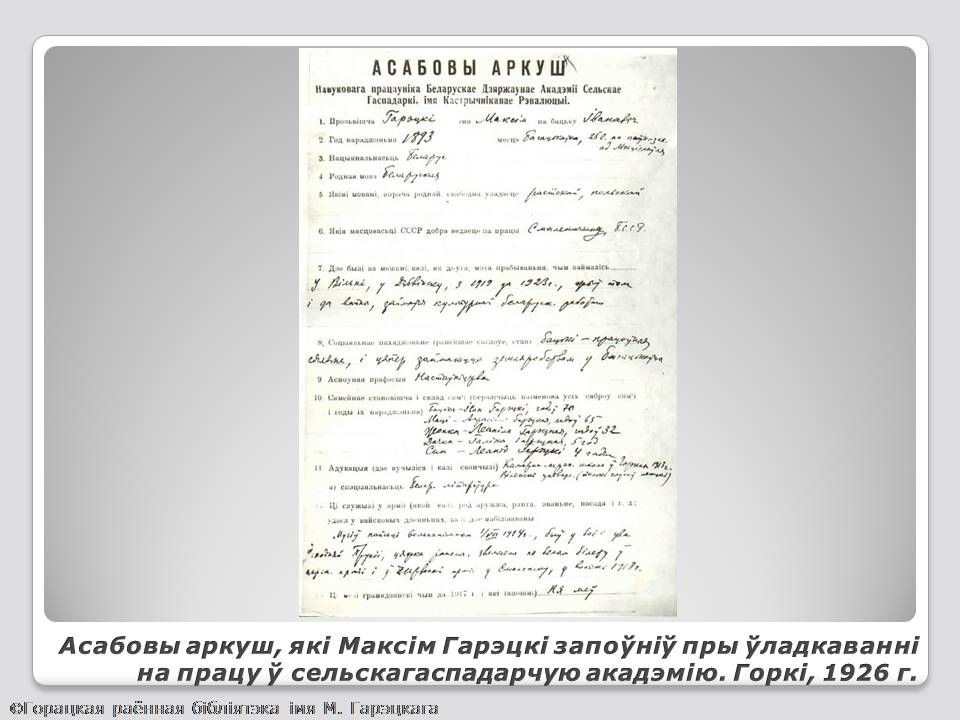 АСАБОВЫ АРКУШ
Навуковага працаўніка Беларускае Дзяржаўнае Акадэміі Сельскае
Гаспадаркі, імя Кастрычнікавае Рэвалюцыі.
1. Прозьвішча Гарэцкі імя Максім па бацьку Іванавіч
2. Год нараджэньня 1893 месца Багацькаўка, 25 в. на
ад Мсьціслаўля
3. Нацыянальнасьць Беларус
4 Родная мова Беларуская
5. Якімі мовамі, апрача роднай, свабодна уладаеце расійскай, польскай
6. Якія мясцовасьці СССР добра ведаеце па працы Смаленшчыну, БССР.
7. Дзе былі за межамі, калі, як доўга, мэта прабываньня, чым займаліся
У Вільні, у Дзьвінску, з 1919 да 1923 г., быў там
і да вайны, займаўся культурнай беларуск. работай
8. Соцыяльнае пахаджэньне (ранейшае саслоўе, стан) бацькі – працоўныя
сяляне, і цяпер займаюцца земляробствам у Багацькаўцы
9 Асноўная прафэсыя Настаўніцтва
10. Сямейнае становішча і склад сям'і (пералічыць паімённа усіх сяброў сям'і
і годы іх нараджэньня) Бацька – Іван Гарэцкі, гадоў 70
Маці – Гарэцкая, гадоў 65
Жонка – Леаніла Гарэцкая, гадоў 32
Дачка – Галіна Гарэцкая, 5 год
Сын – Леанід Гарэцкі 4 гады
11. Адукацыя (дзе вучыліся і калі скончылі) школа ў Горках 1913 г.
а) спэцыяльнасьць Белар. літаратура
Ці служылі у арміі (якой, калі, род аружжа, ранга, званьне, пасада і г. д.;
удзел у вайсковых дзеяньнях, калі дэмабілізаваны
1914 г., быў у
Прусіі, цяжка ранен,
і ў Чырвонай арміі у Смаленску, у 1918 г.
Ці мелі грамадзянскі чын да 1917 г. і які (апошні) Ня меў
Асабовы аркуш, які Максім Гарэцкі запоўніў пры ўладкаванні
на працу ў сельскагаспадарчую акадэмію. Горкі, 1926 г.
©Горацкая раённая бібліятэка імя М. Гарэцкага